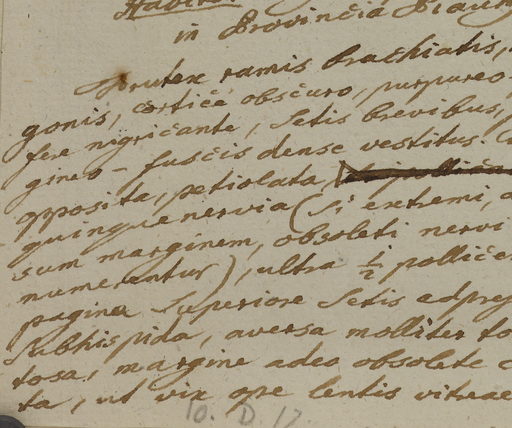 Habitat
in Provincia Piauh
Frutex ramis brachiatis,
gonis, cortice obscuro, purpureo-
fere nigricante, setis brevibus,
gineo-fuscis dense vestitus.
opposita, petiolata,
quinquenervia (si extremi, a
sum marginem, obsoleti nervi
numerantur), ultra ½ pollice
pagina superiore setis adpres
subhispida, aversa molliter to
tosa, margine adeo obsolete c
ta, ut vix ope lentis vitreae
10. D. 17